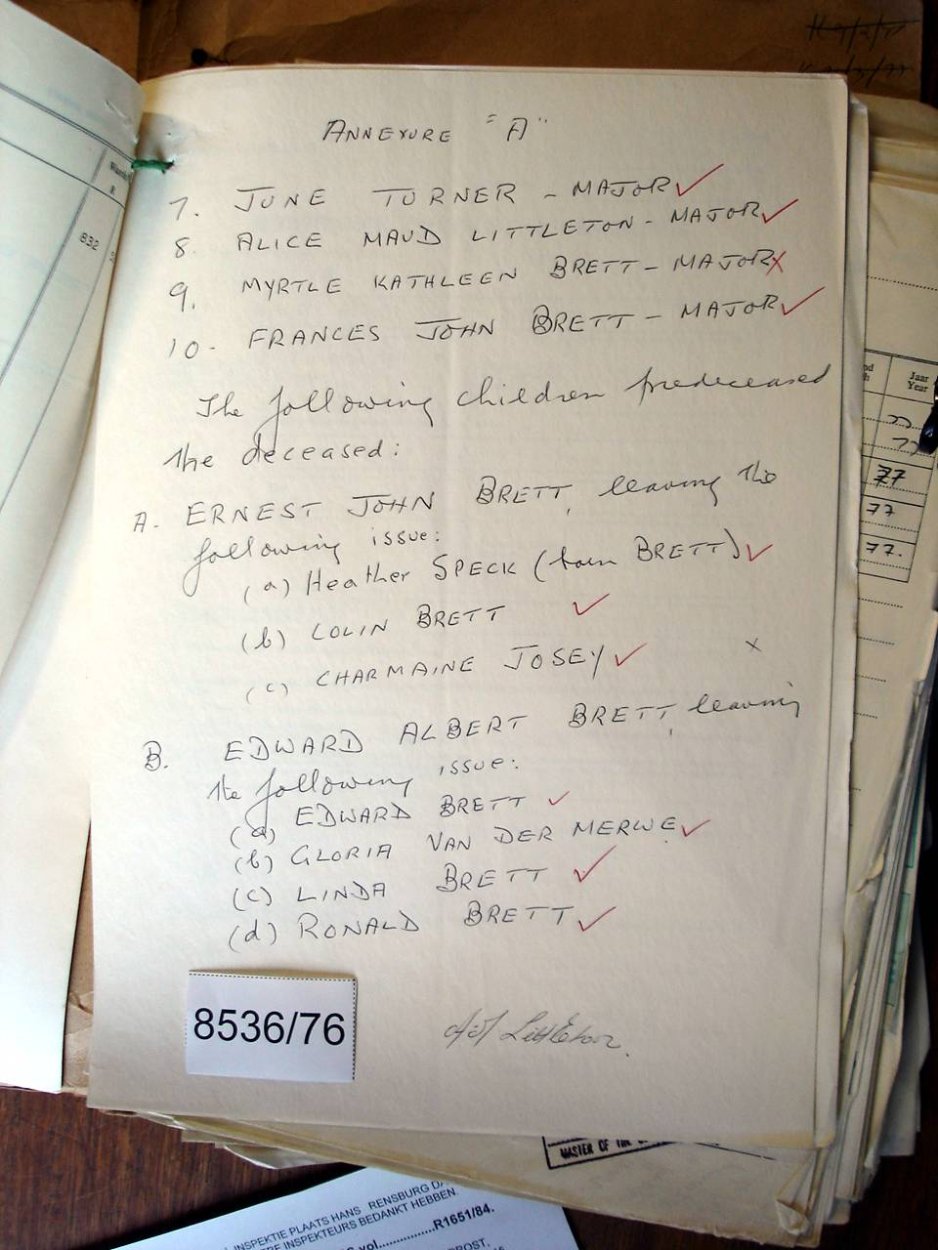 ANNEXURE "A"
7. JUNE TURNER - MAJOR
8. ALICE MAUD LITTLETON - MAJOR
9. MYRTLE KATHLEEN BRETT - MAJOR
10- FRANCES JOHN BRETT - MAJOR
The following children predeceased
the deceased:
A. ERNEST JOHN BRETT, leaving the
following issue:
(a) Heather SPECK (born BRETT)
(b) COLIN BRETT
(c) CHARMAINE JOSEY
B. EDWARD ALBERT BRETT, leaving
the following issue:
(a) EDWARD BRETT
(b) GLORIA VAN DER MERWE
(c) LINDA BRETT
(d) RONALD BRETT
8536/76
Littleton
832
Jaar
Year
77
77
77
77
77.
MASTER OF THE
INSPEKTIE PLAATS HANS RENSBURG
INSPEKTEURS BEDANKT HEBBEN.
vol................R1651/84.
PROST,